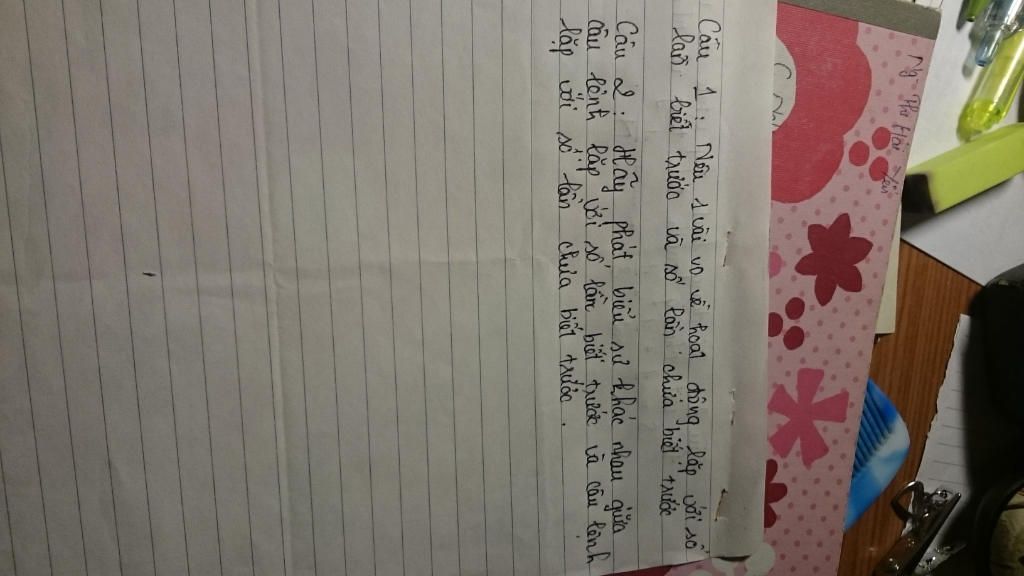 Câu 1 : Nêu 1 vài vd về hoạt động lặp với số
lần biết trước và số lần chưa biết trước
Câu 2 : Hãy phát biểu sự khác nhau giữa
câu lệnh lặp với số lần biết trước và câu lệnh
lặp với số lần chưa biết trước.
Ng Thị Hải Yến